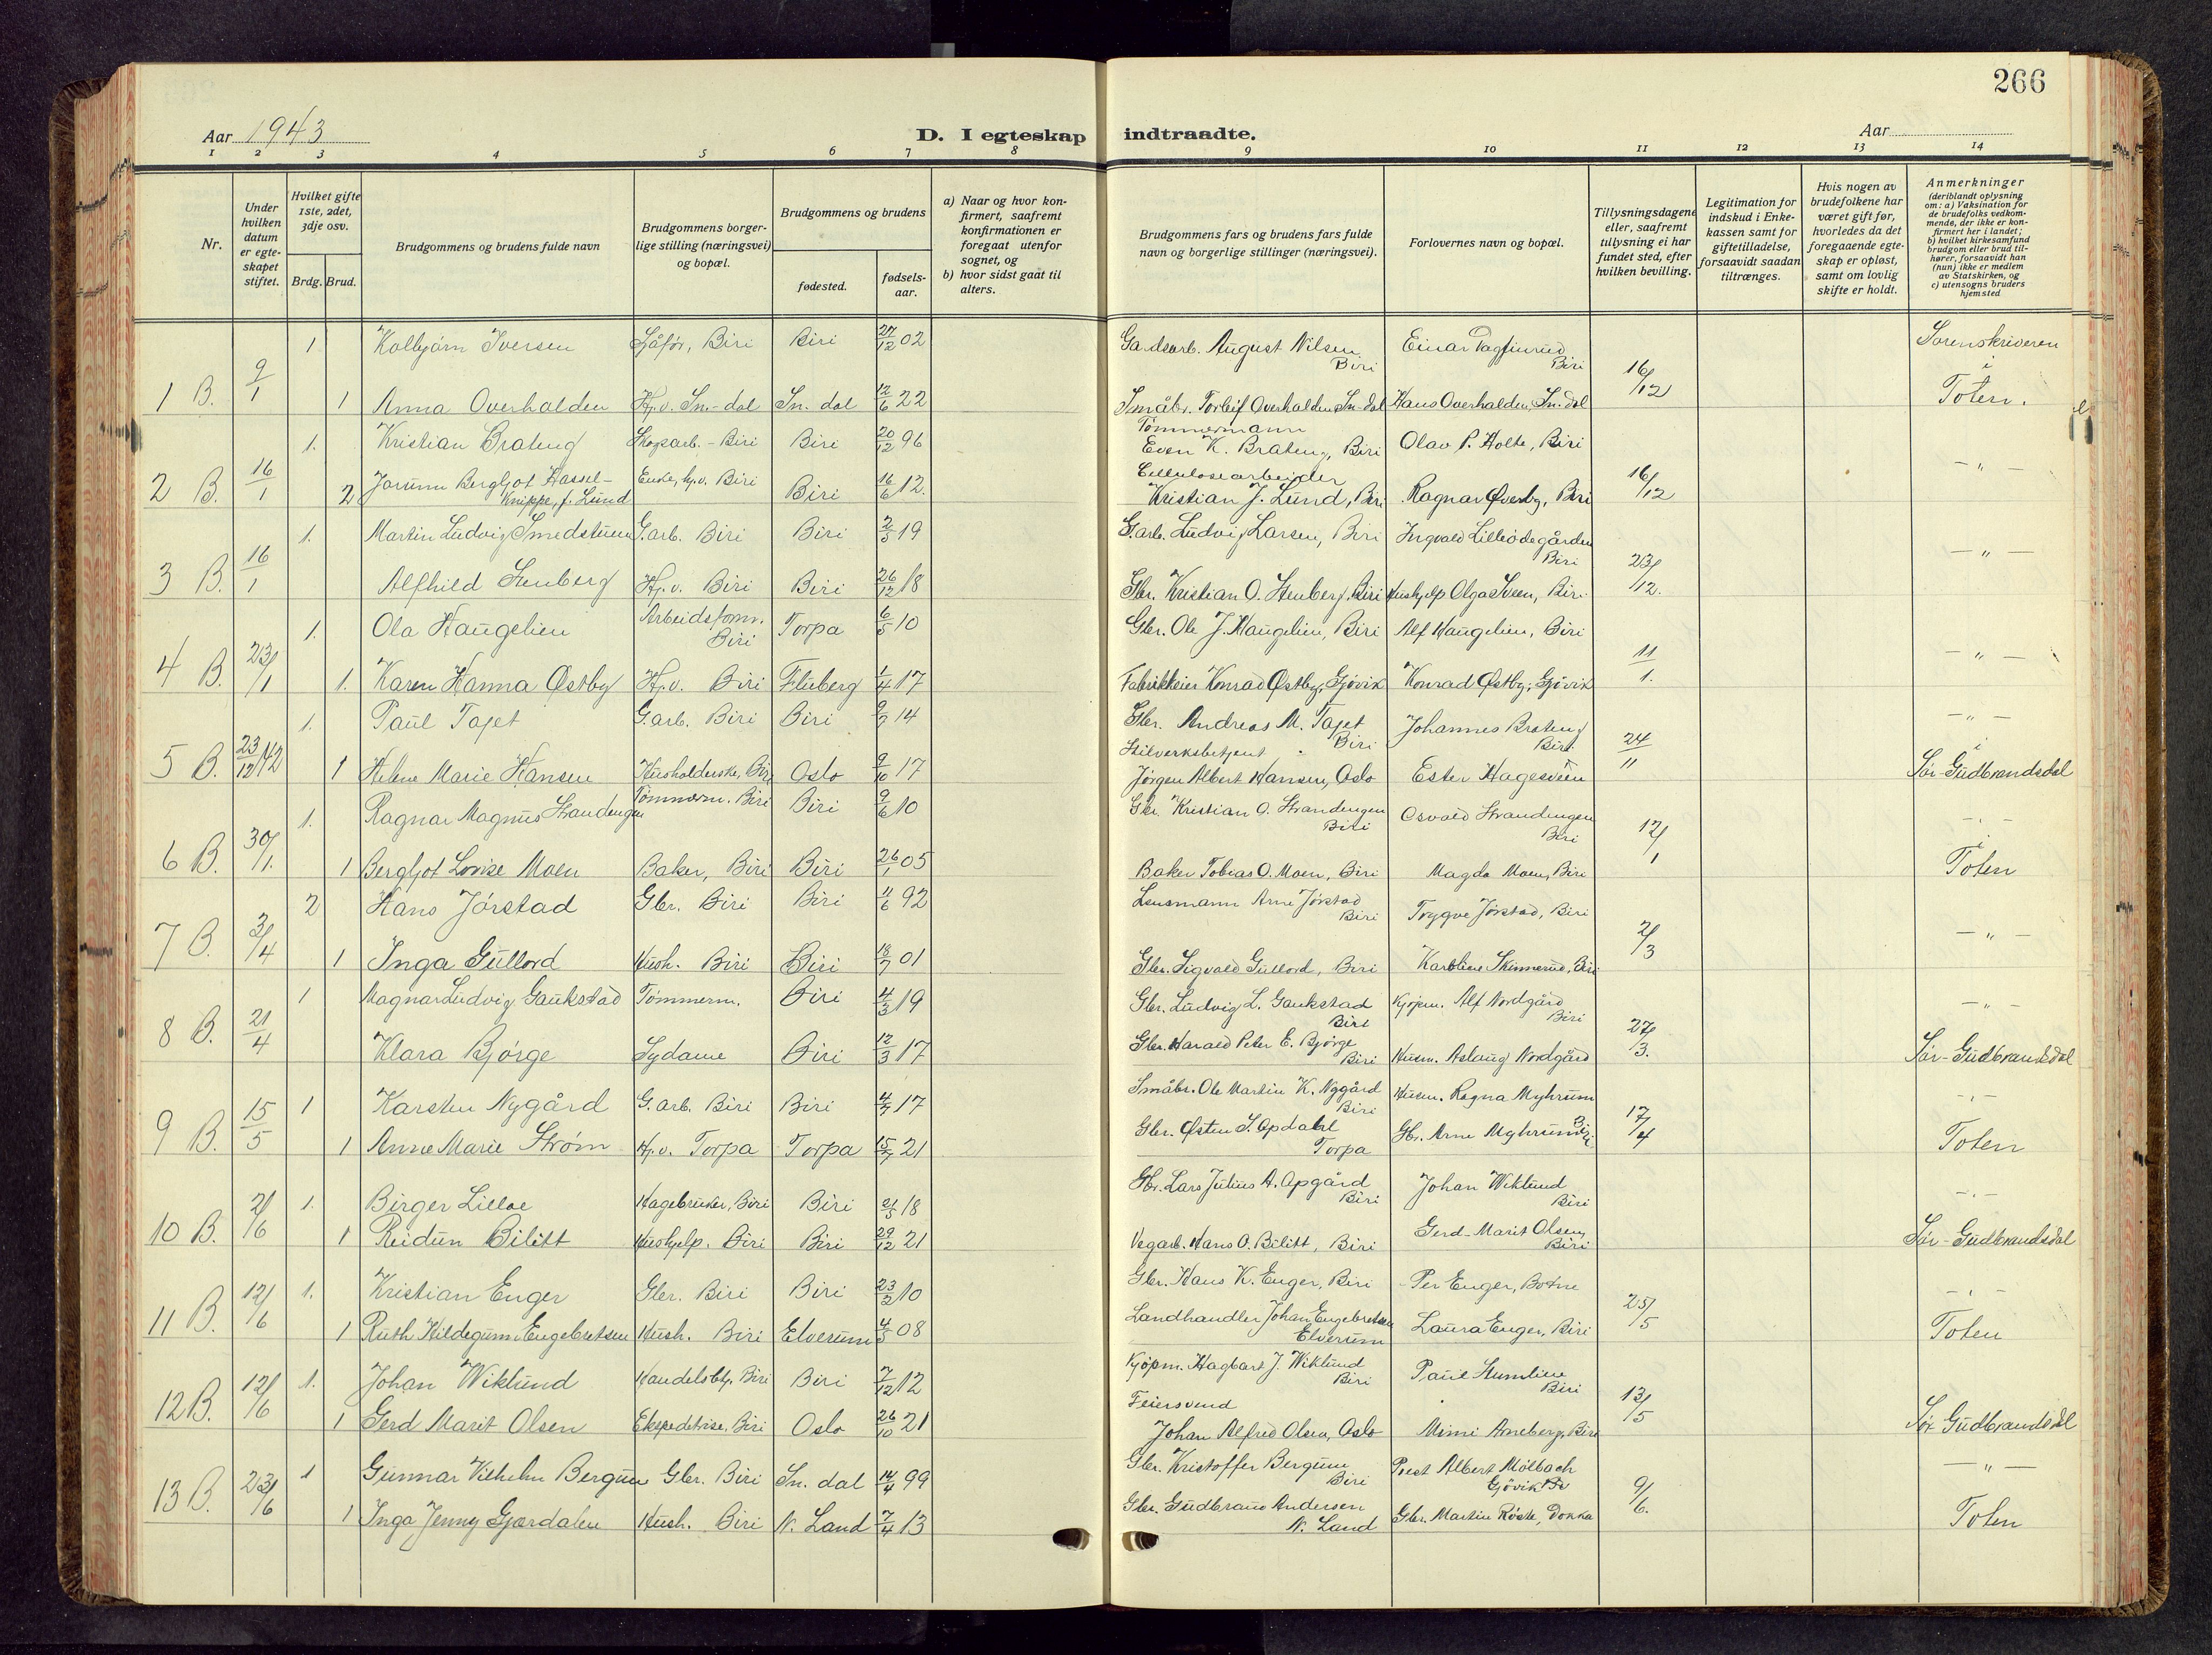 266
Aar 1943
D. I egteskap indtraadte.
Aar
1 2 3 4 5 6 7 8 9 10 11 12 13 14
Nr.
Under hvilken datum er egteskapet stiftet.
Hvilket gifte 1ste, 2det, 3dje osv.
Brdg. Brud.
Brudgommens og brudens fulde navn
Brudgommens borgerlige stilling (næringsvei) og bopæl.
Brudgommens og brudens
fødested.
fødselsaar.
a) Naar og hvor konfirmert, saafremt konfirmationen er foregaat utenfor sognet, og
b) hvor sidst gaat til alters.
Brudgommens fars og brudens fars fulde navn og borgerlige stillinger (næringsvei).
Forlovernes navn og bopæl.
Tillysningsdagene eller, saafremt tillysning ei har fundet sted, efter hvilken bevilling.
Legitimation for indskud i Enkekassen samt for giftetilladelse, forsaavidt saadan tiltrænges.
Hvis nogen av brudefolkene har været gift før, hvorledes da det foregaaende egteskap er opløst, samt om lovlig skifte er holdt.
Anmerkninger
(deriblandt oplysning om: a) Vaksination for de brudefolks vedkommende, der ikke er konfirmert her i landet; b) hvilket kirkesamfund brudgom eller brud tilhører, forsaavidt han (hun) ikke er medlem av Statskirken, og c) utensogns bruders hjemsted
1 Kolbjørn Iversen Sjåfør, Biri Biri 27/12 02 Gardsarb. August Nilsen Biri Einar Dagfinrud Biri Sorenskriveren i
1 B. 9/1 16/12
1 Anna Overhalden Hj.v. Sn.-dal Sn. dal 12/6 22 Småbr. Torleif Overhalden Sn-dal Hans Overhalden, Sn.dal Toten.
1. Kristian Brateng Skogsarb. - Biri Biri 20/12 96 Tømmermann Even K. Brateng, Biri Olav P. Holte, Biri
2 B. 16/1 16/12 - " -
2 Jorunn Bergljot Hasselknippe, f. Lund Enke, hj.v. Biri Biri 16/6 12. Cellulosearbeider Kristian J. Lund, Biri Ragnar Øverby, Biri
1. Martin Ludvig Smedstuen G.arb. Biri Biri 2/5 19 G.arb. Ludvig Larsen, Biri Ingvald Lilleødegården Biri
3 B. 16/1 23/12. - " -
Alfhild Stenberg Hj.v. Biri Biri 26/12 18 Gbr. Kristian O. Stenberg, Biri Hushjelp Olga Sveen, Biri.
1. Ola Haugelien Arbeidsform. Biri Torpa 6/5 10 Gbr. Ole J. Haugelien, Biri Alf Haugelien, Biri
4 B. 23/1 11/1. - " -
1. Karen Hanna Østby Hj.v. Biri Fluberg 1/4 17 Fabrikkeier Konrad Østby, Gjøvik Konrad Østby, Gjøvik
1. Paul Tajet G.arb. Biri Biri 9/7 14 Gbr. Andreas M. Tajet Biri Johannes Brateng Biri - " - i
5 B. 23/12 42 24/11
1 Helene Marie Hansen Husholderske, Biri Oslo 9/10 17 Jørgen Albert Hansen, Oslo Ester Hagesveen Sør-Gudbrandsdal
1. Ragnar Magnus Strandengen Tømmerm. Biri Biri 9/6 10 Gbr. Kristian O. Strandengen Biri Osvald Strandengen Biri - " - i
6 B. 30/1. 12/1
1 Bergljot Lovise Moen Baker, Biri Biri 26/1 05 Baker Tobias O. Moen, Biri Magda Moen, Biri Toten
2 Hans Jørstad Gbr. Biri Biri 11/6 92 Lensmann Arne Jørstad Biri Trygve Jørstad, Biri
7 B. 3/4 2/3 - " -
1 Inga Gullord Hush. Biri Biri 18/7 01 Gbr. Sigvald Gullord, Biri Karoline Skinnerud, Biri
1 Magnar Ludvig Gaukstad Tømmerm. Biri 4/3 19 Gbr. Ludvig L. Gaukstad Biri Kjøpm. Alf Nordgård Biri - " -
8 B. 21/4 27/3.
Klara Bjørge Sydame Biri 12/3 17 Gbr. Harald Peter E. Bjørge Biri Husm. Aslaug Nordgård Sør-Gudbrandsdal
1 Karsten Nygård G.arb. Biri Biri 4/7 17 Småbr. Ole Martin K. Nygård Biri Husm. Ragna Myhrum - " -
9 B. 15/5 17/4
1 Anne Marie Strøm Hj.v. Torpa Torpa 15/7 21 Gbr. Østen S. Opdahl Torpa Gbr. Arne Myhrum Biri Toten
1. Birger Lilloe Hagebruker, Biri Biri 21/5 18 Gbr. Lars Julius A. Opgård Biri Johan Wiklund Biri - " -
10 B. 2/6
1 Reidun Bilitt Hushjelp. Biri Biri 29/12 21 Vegarb. Hans O. Bilitt, Biri Gerd-Marit Olsen, Biri Sør-Gudbrandsdal
1. Kristian Enger Gbr. Biri Biri 23/2 10 Gbr. Hans K. Enger, Biri Per Enger, Botne - " -
11 B. 12/6 25/5
1 Ruth Hildegunn Engebretsen Hush. Biri Elverum 4/5 08 Landhandler Johan Engebretsen Elverum Laura Enger, Biri Toten
1. Johan Wiklund Handelsbtj. Biri Biri 7/12 12 Kjøpm. Hagbart J. Wiklund Biri Paul Stumlien Biri
12 B. 12/6 13/5
1 Gerd Marit Olsen Ekspeditrise, Biri Oslo 26/10 21 Feiersvend Johan Alfred Olsen, Oslo Mimi Arneberg, Biri Sør Gudbrandsdal
1 Gunnar Vilhelm Bergum Gbr. Biri Sn. dal 14/4 99 Gbr. Kristoffer Bergum Biri Prest Albert Mølbach Gjøvik - " -
13 B. 23/6 9/6.
1 Inga Jenny Gjærdalen Hush. Biri N. Land 7/4 13 Gbr. Gudbrand Andersen N. Land Gbr. Martin Røste, Dokka Toten